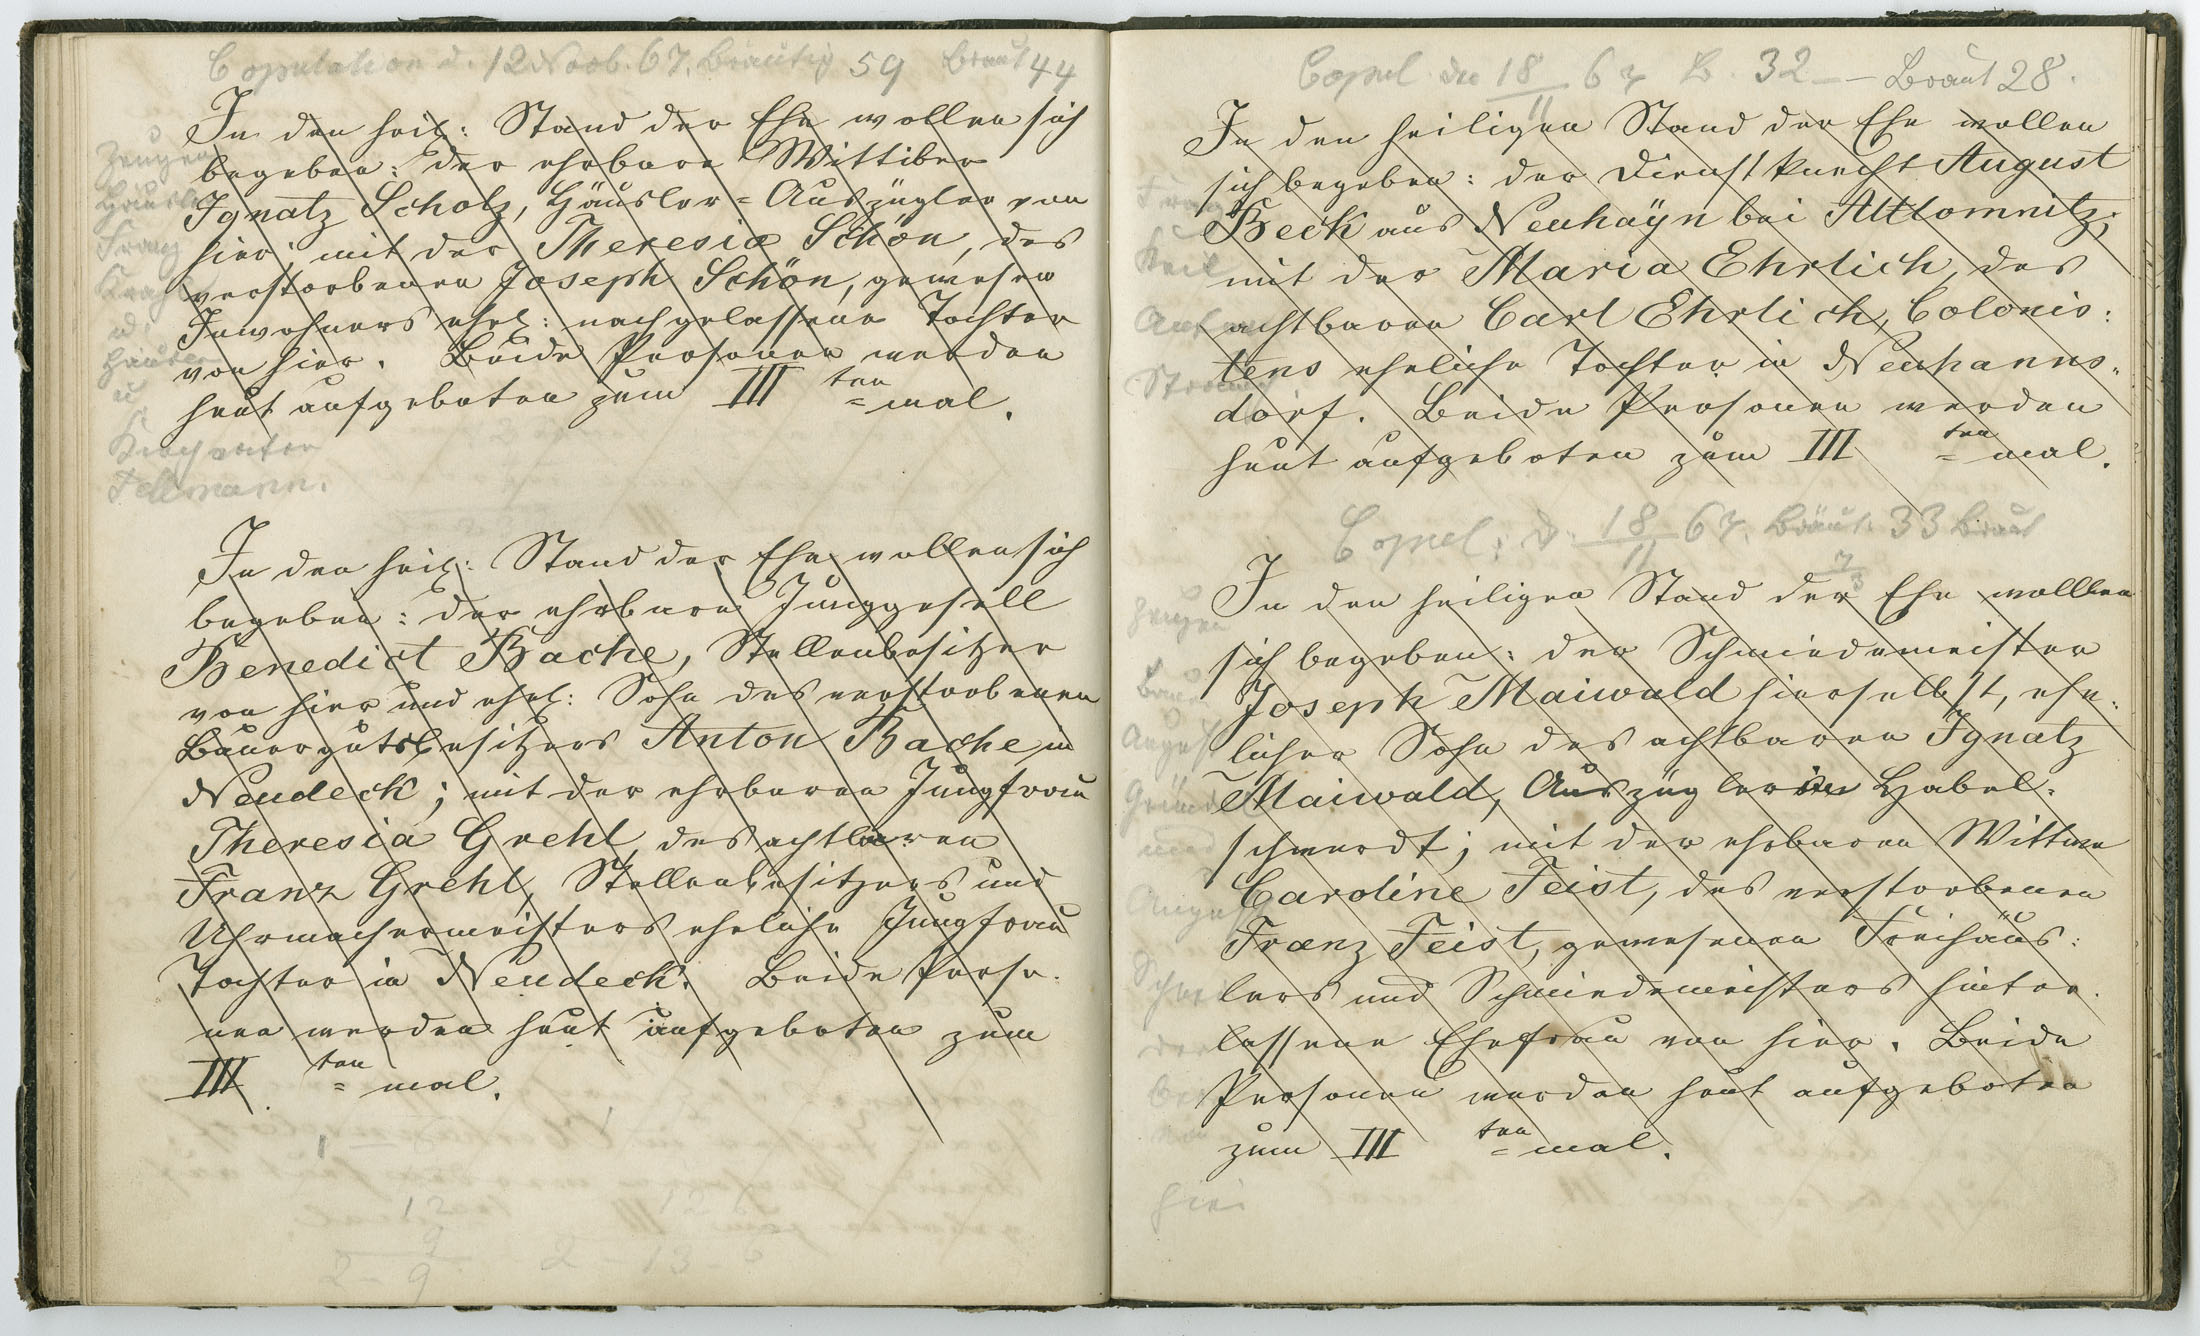 Copulation d. 12 Novb. 67. Bräutig 59 Braut 44
In den heil: Stand der Ehe wollen sich
begeben: der ehrbare Wittiber
Ignatz Scholz, Häusler-Auszügler von
hier; mit der Theresia Schön, des
verstorbenen Joseph Schön, gewesen
Inwohners ehel: nachgelassene Tochter
von hier. Beide Personen werden
heut aufgeboten zum III ten = mal.
Zeugen
Häusler
Franz
u.
Häusler
u.
Kirchvater
Tellmann.
In den heil: Stand der Ehe wollen sich
begeben: der ehrbare Junggesell
Benedict Bache, Stellenbesitzer
von hier und ehel: Sohn des verstorbenen
Bauergutsbesitzers Anton Bache in
Neudeck; mit der ehrbaren Jungfrau
Theresia Grehl, des achtbaren
Franz Grehl, Stellenbesitzers und
Uhrmachermeisters eheliche Jungfrau
Tochter in Neudeck. Beide Perso-
nen werden heut aufgeboten zum
III ten = mal.
1
12
9
2 - 9
Copul. den 18/11 67 B. 32 — Braut 28.
In den heiligen Stand der Ehe wollen
sich begeben: der Dienstknecht August
Beck aus Neuhayn bei Altlomnitz;
mit der Maria Ehrlich, des
achtbaren Carl Ehrlich, Colonis:
tens eheliche Tochter in Neuhanns-
dorf. Beide Personen werden
heut aufgeboten zum III ten = mal.
Copul: d. 18/11 67. Bräut. 33 Braut
In den heiligen Stand der Ehe wolllen
sich begeben: der Schmiedemeister
Joseph Maiwald hierselbst, ehe-
licher Sohn des achtbaren Ignatz
Maiwald, Auszügler in Habel-
schwerdt; mit der ehrbaren Wittwe
Caroline Feist, des verstorbenen
Franz Feist, gewesenen Freihäus:
lers und Schmiedemeisters hinter-
lassene Ehefrau von hier. Beide
Personen werden heut aufgeboten
zum III ten = mal.
Zeugen
August
und
August
hier